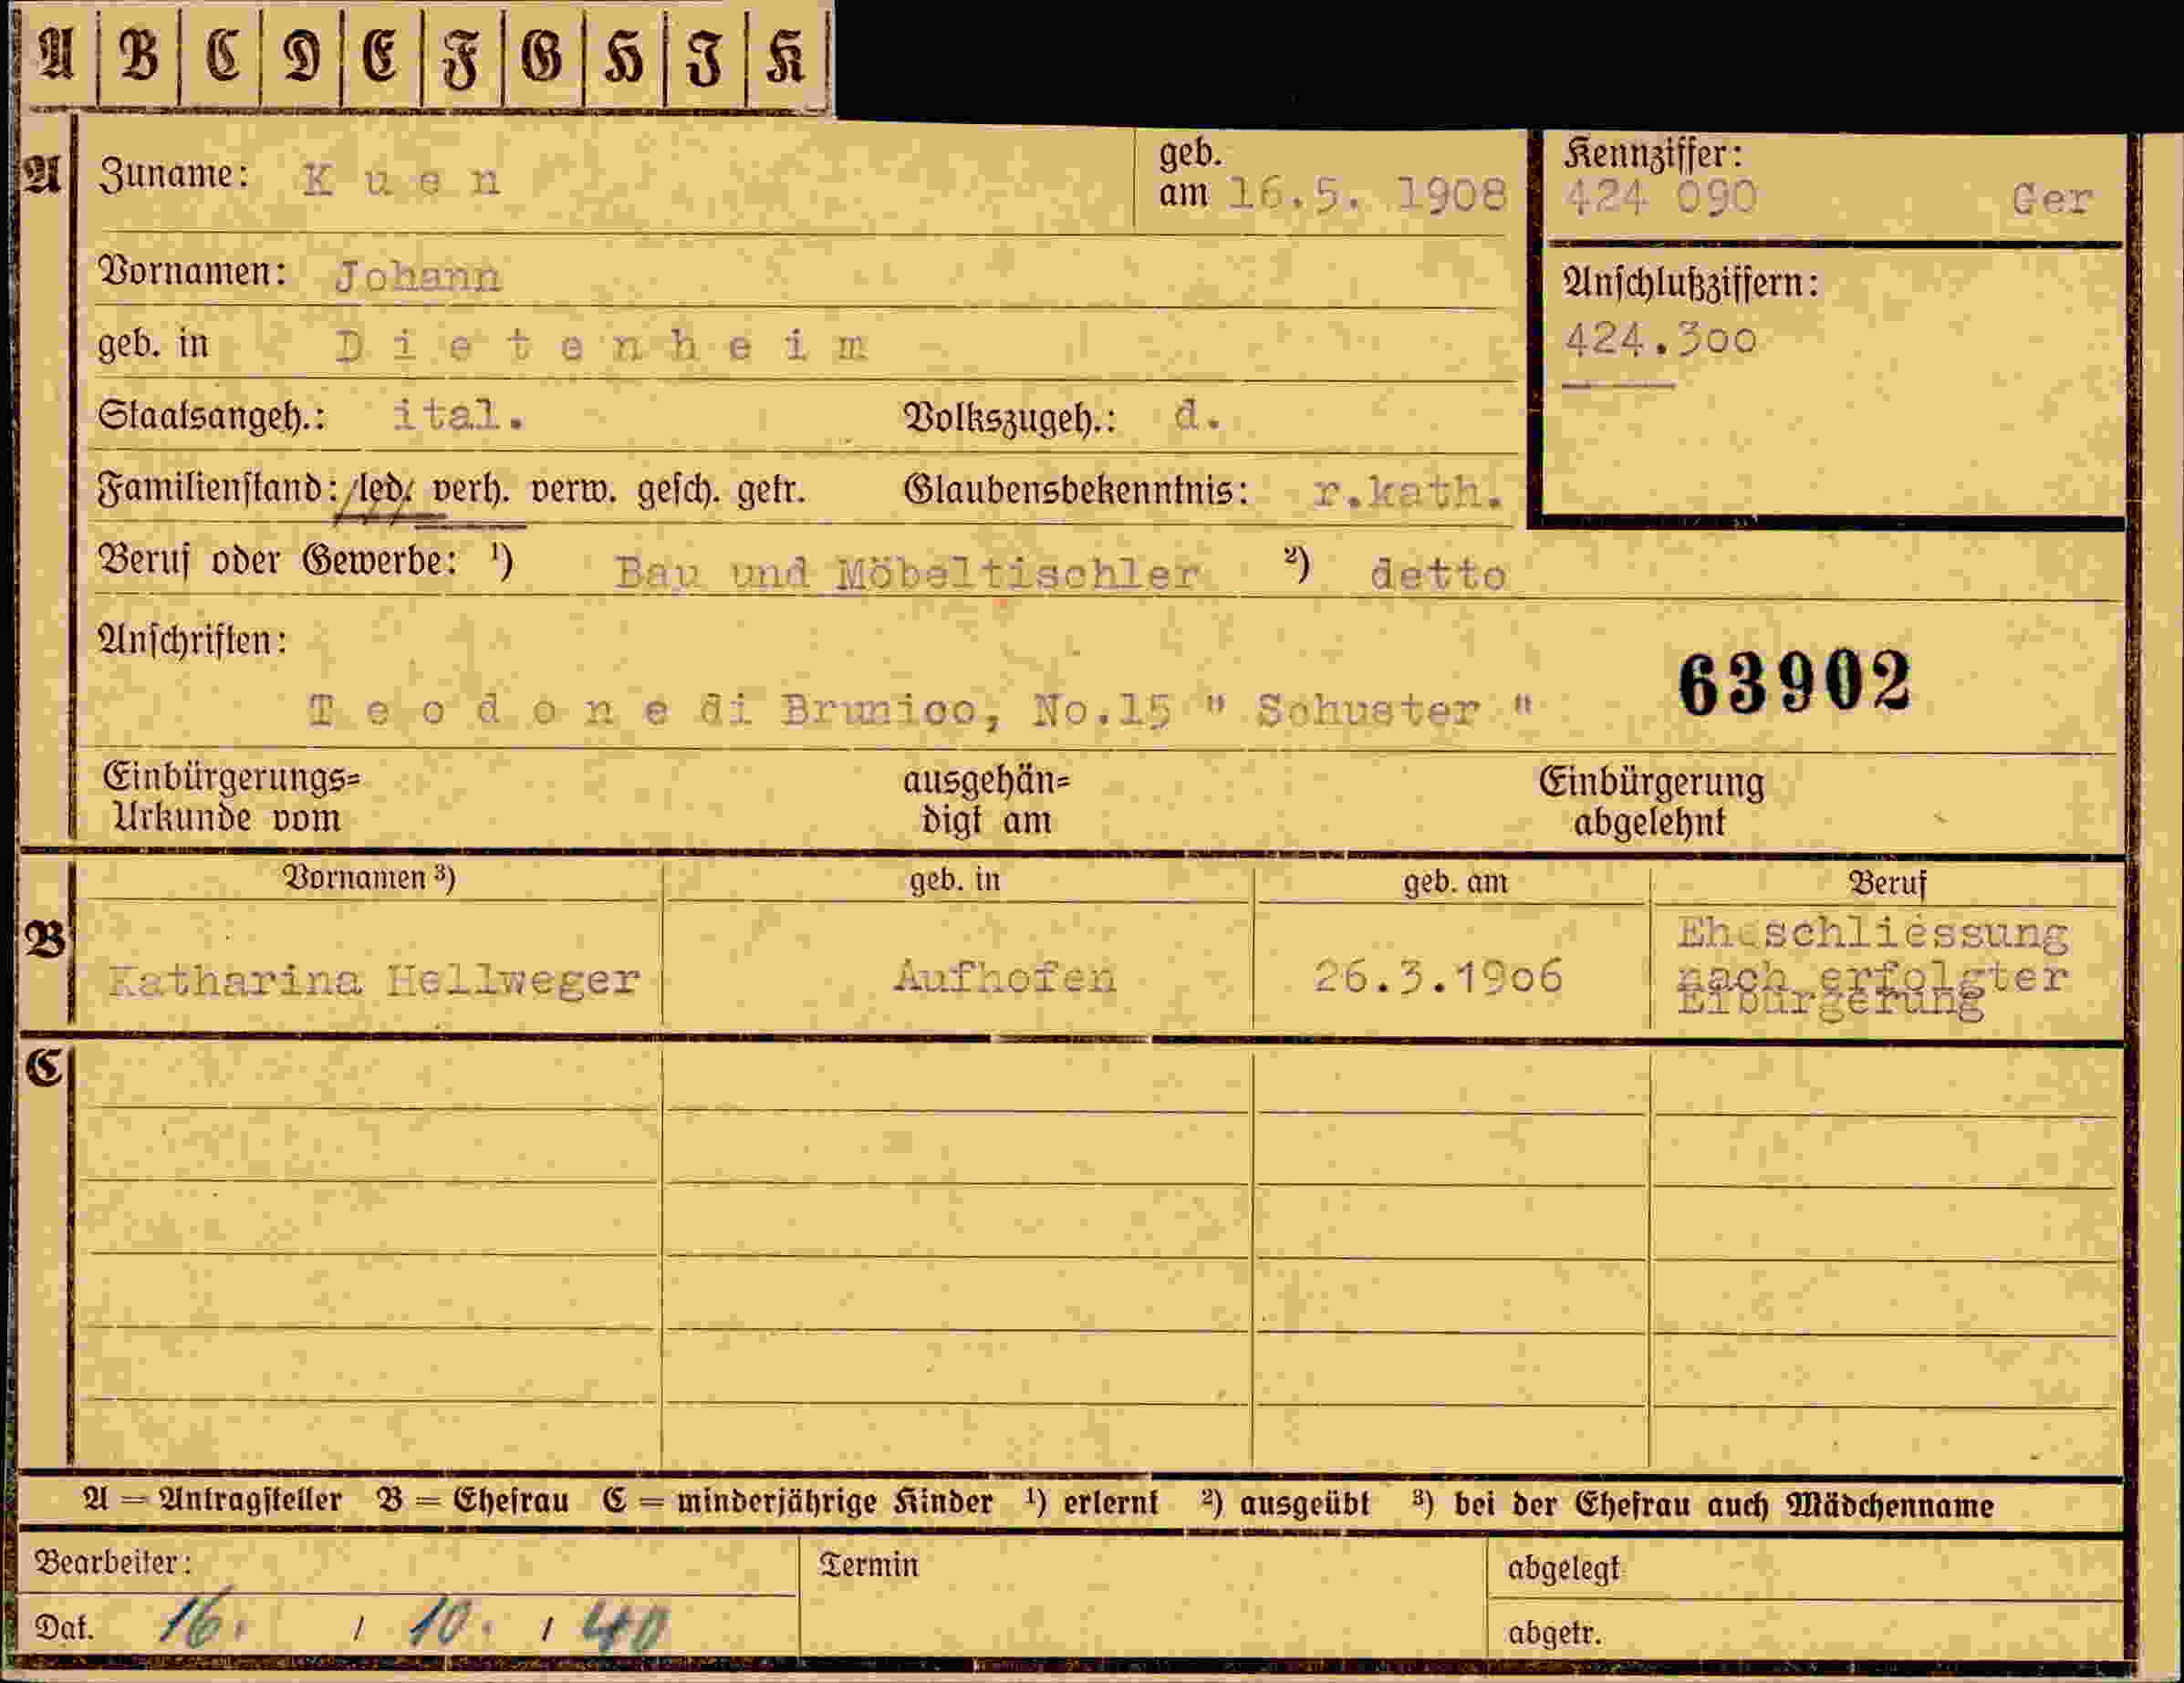 A B C D E F G H I K
A Zuname: Kuen geb. am 16.5. 1908 Kennziffer: 424 090 Ger
Vornamen: Johann Anschlußziffern:
geb. in Dietenheim 424.300
Staatsangeh.: ital. Volkszugeh.: d.
Familienstand: led. verh. verw. gesch. getr. Glaubensbekenntnis: r.kath.
Beruf oder Gewerbe: ¹) Bau und Möbeltischler ²) detto
Anschriften:
Teodone di Brunico, No.15 " Schuster " 63902
Einbürgerungs= ausgehän= Einbürgerung
Urkunde vom digt am abgelehnt
Vornamen ³) geb. in geb. am Beruf
B Katharina Hellweger Aufhofen 26.3.1906 Eheschliessung
nach erfolgter
Eibürgerung
C
A = Antragsteller B = Ehefrau C = minderjährige Kinder ¹) erlernt ²) ausgeübt ³) bei der Ehefrau auch Mädchenname
Bearbeiter: Termin abgelegt
Dat. 16. / 10. / 40 abgetr.